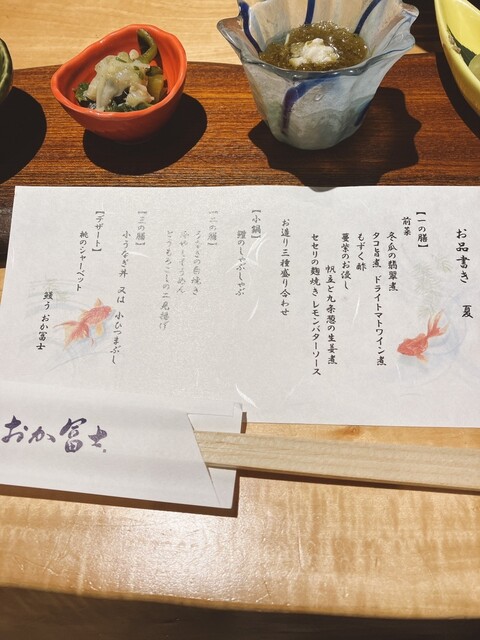 お品書き 夏
【一の膳】
前菜
冬瓜の翡翠煮
タコ旨煮 ドライトマトワイン煮
もずく酢
蔓紫のお浸し
帆立と九条葱の生姜煮
セセリの麹焼き レモンバターソース
お造り三種盛り合わせ
【小鍋】
鱧のしゃぶしゃぶ
【二の膳】
うなぎの白焼き
冷やしそうめん
とうもろこしのかき揚げ
【三の膳】
小うなぎ丼 又は 小ひつまぶし
【デザート】
桃のシャーベット
鰻う おか冨士
おか冨士